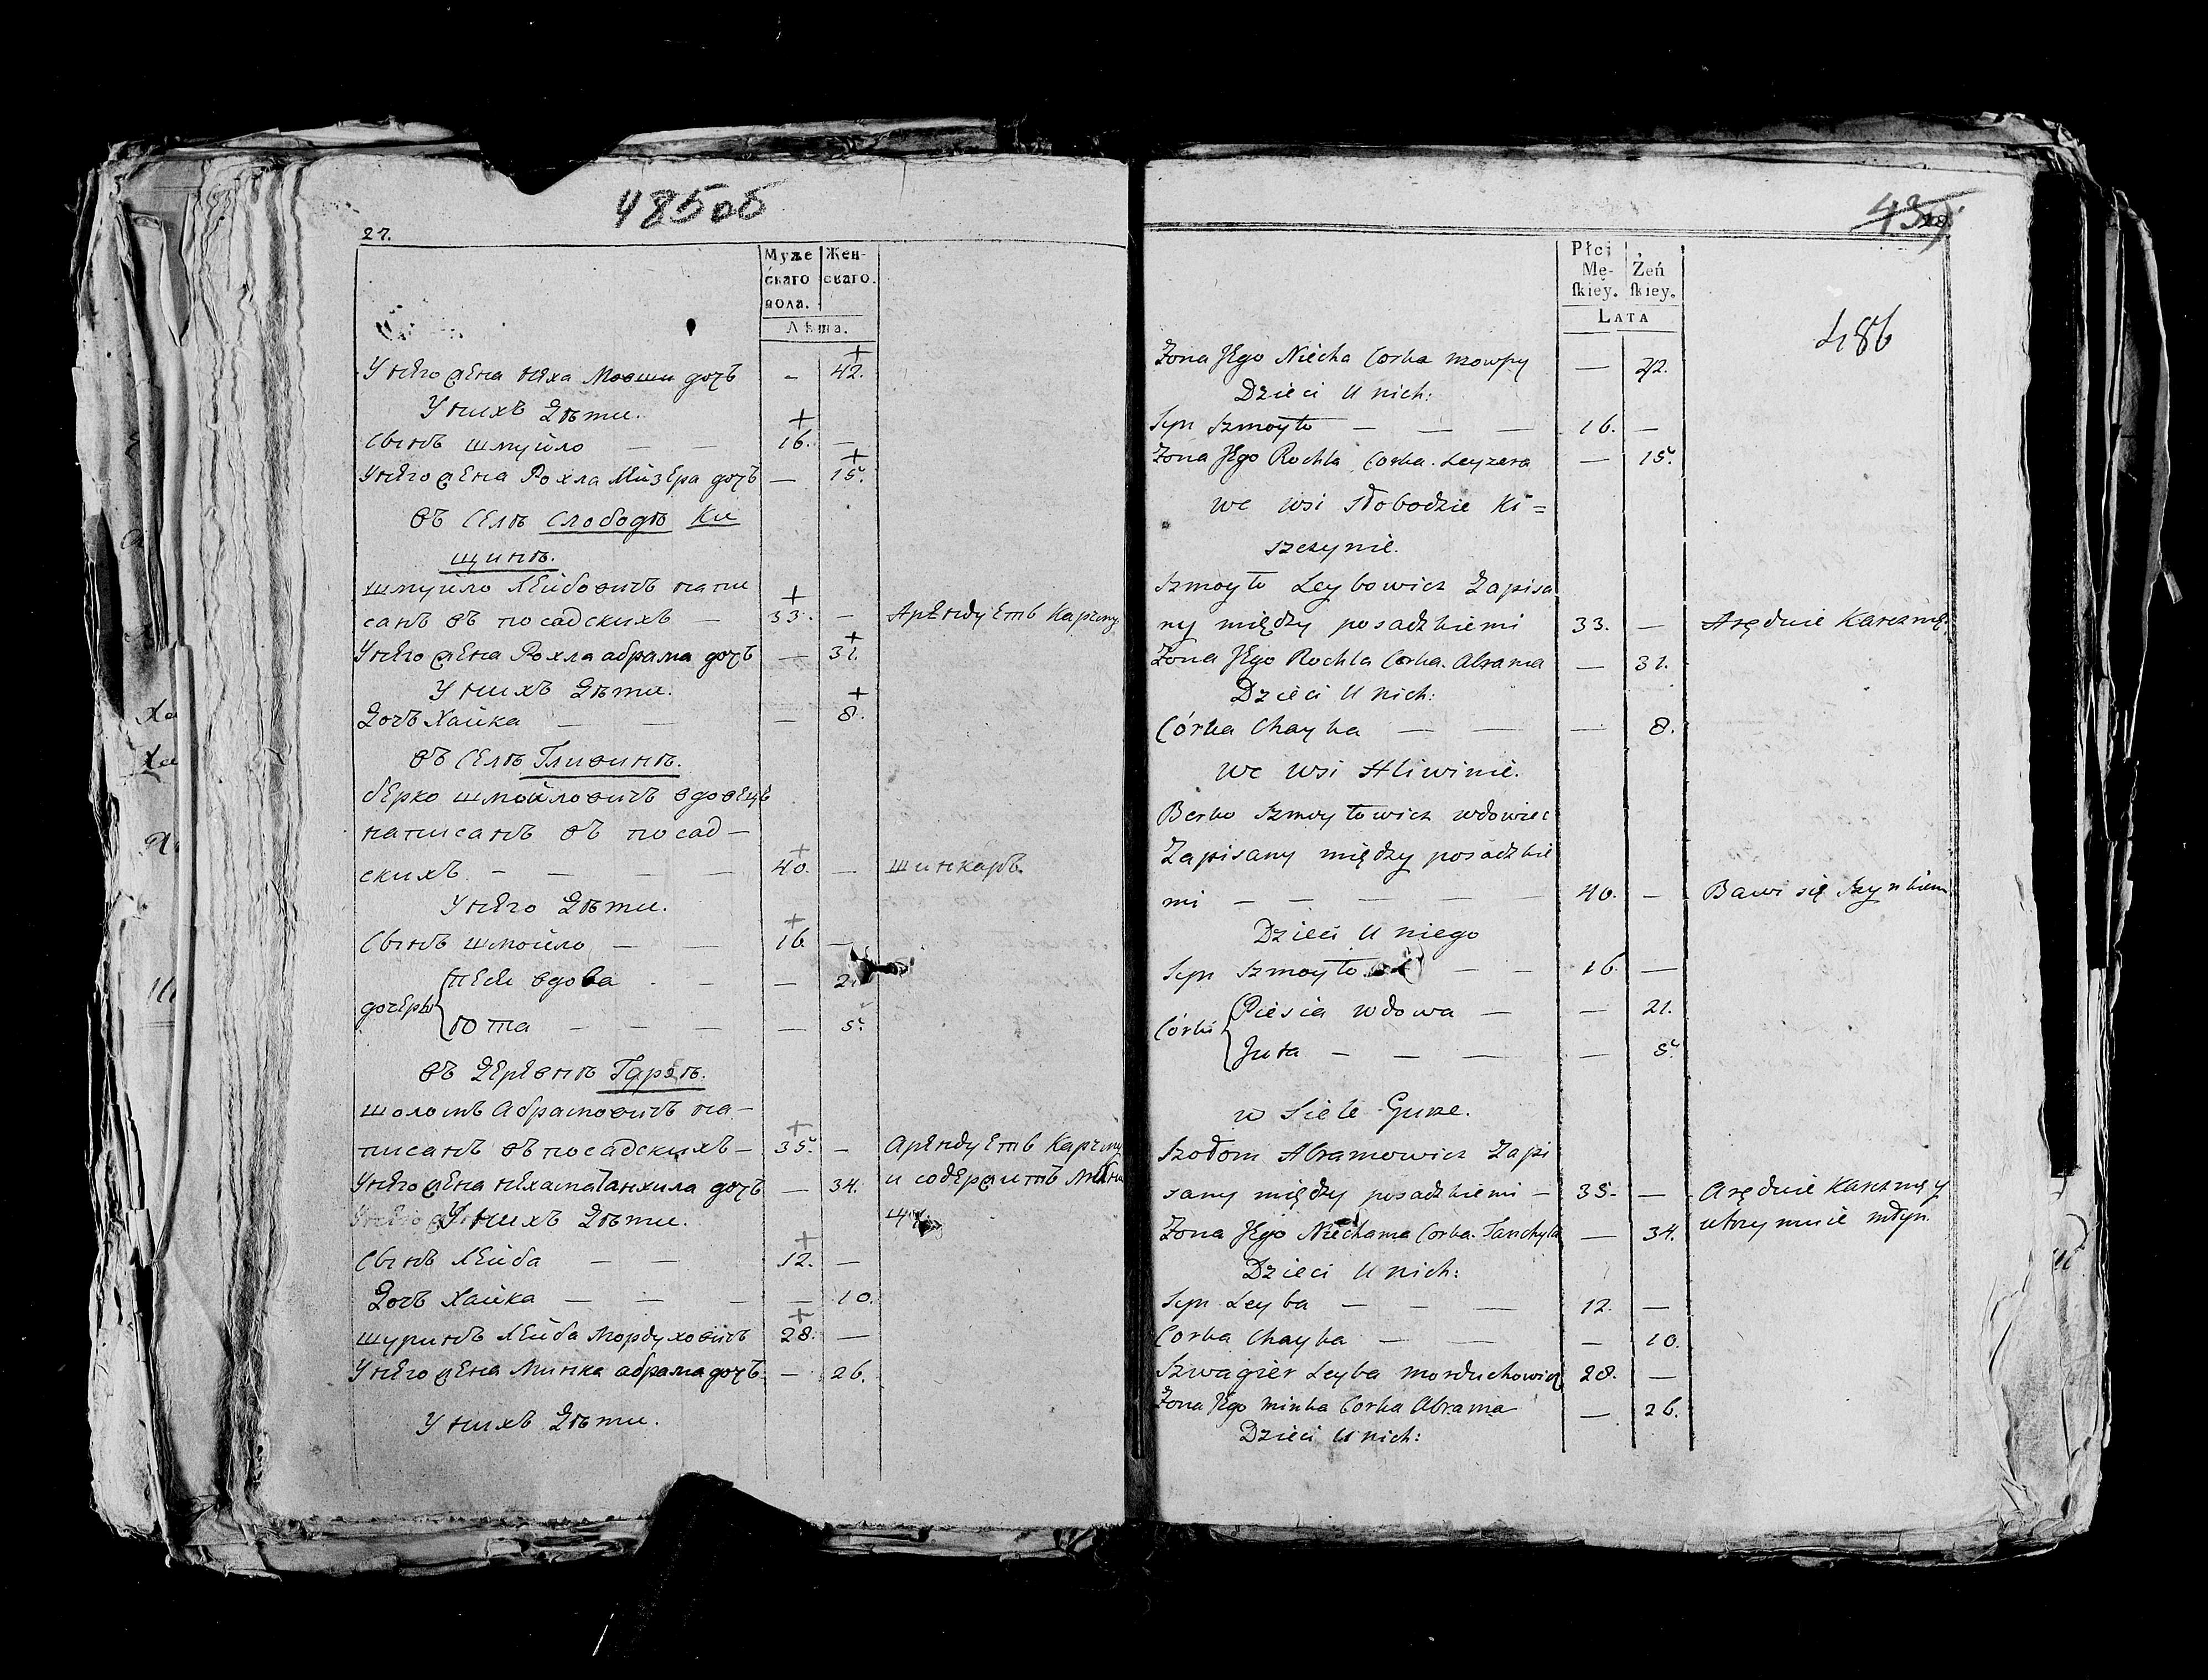 485об
27.
Муже Жен-
скаго скаго.
пола.
Лѣта.
У него жена Няха Мовши дочь - 42.
У нихъ Дѣти.
Сынъ Шмуйло — — 16. —
У него жена Рохла Лейзера дочь — 15.
въ Селѣ Слободѣ Ки
щинѣ.
Шмуйло Лейбовичъ напи
санъ въ посадскихъ — 33. — Арендуетъ Карчму
У него жена Рохла абрама дочь — 31.
У нихъ Дѣти.
Дочь Хайка — — — 8.
въ Селѣ Гливинѣ.
Берко Шмойловичъ вдовецъ
написанъ въ посад—
скихъ. — — — — 40. — шинкаръ.
У него Дѣти.
Сынъ Шмойло — — 16. —
дочеры Песя вдова — — 2
Юта — — — — 5.
въ Деревнѣ Гарѣ.
Шоломъ Абрамовичъ на—
писанъ въ посадскихъ — 35. — Арендуетъ Карчму
У него жена Нехама Танхила дочь — 34. и содержитъ
У нихъ Дѣти.
Сынъ Лейба — — 12. —
Дочь Хайка — — — — 10.
Шуринъ Лейба Мордуховичъ 28. —
У него жена Минка абрама дочь — 26.
У нихъ Дѣти.
486
Płci
Mę- Żeń
skiey. skiey.
LATA
Zona Jego Niecha Corka Mowszy — 42.
Dzieci U nich:
Syn Szmoyło — — — 16. —
Zona Jego Rochla Corka Leyzera — 15.
we wsi Słobodzie Ki=
szczynie.
Szmoyło Leybowicz Zapisa
ny między posadzkiemi 33. — Aręduie Karczmę.
Zona Jego Rochla Corka Abrama — 31.
Dzieci U nich:
Córka Chayka — — — 8.
We wsi Hliwinie.
Berko Szmoyłowicz wdowiec
Zapisany między posadzkie
mi — — — — — 40. — Bawi się Szynkiem
Dzieci U niego
Syn Szmoyło — — 16. —
Córki Piesia wdowa — — 21.
Juta — — — — 5.
w Siele Gurze.
Szołom Abramowicz Zapi
sany między posadzkiemi — 35. — Aręduie Karczmę y
Zona Jego Niechama Corka Tanchyla — 34. utrzymuie młyn.
Dzieci U nich:
Syn Leyba — — — 12. —
Corka Chayka — — — 10.
Szwagier Leyba Morduchowicz 28. —
Zona Jego Minka Corka Abrama — 26.
Dzieci U nich: